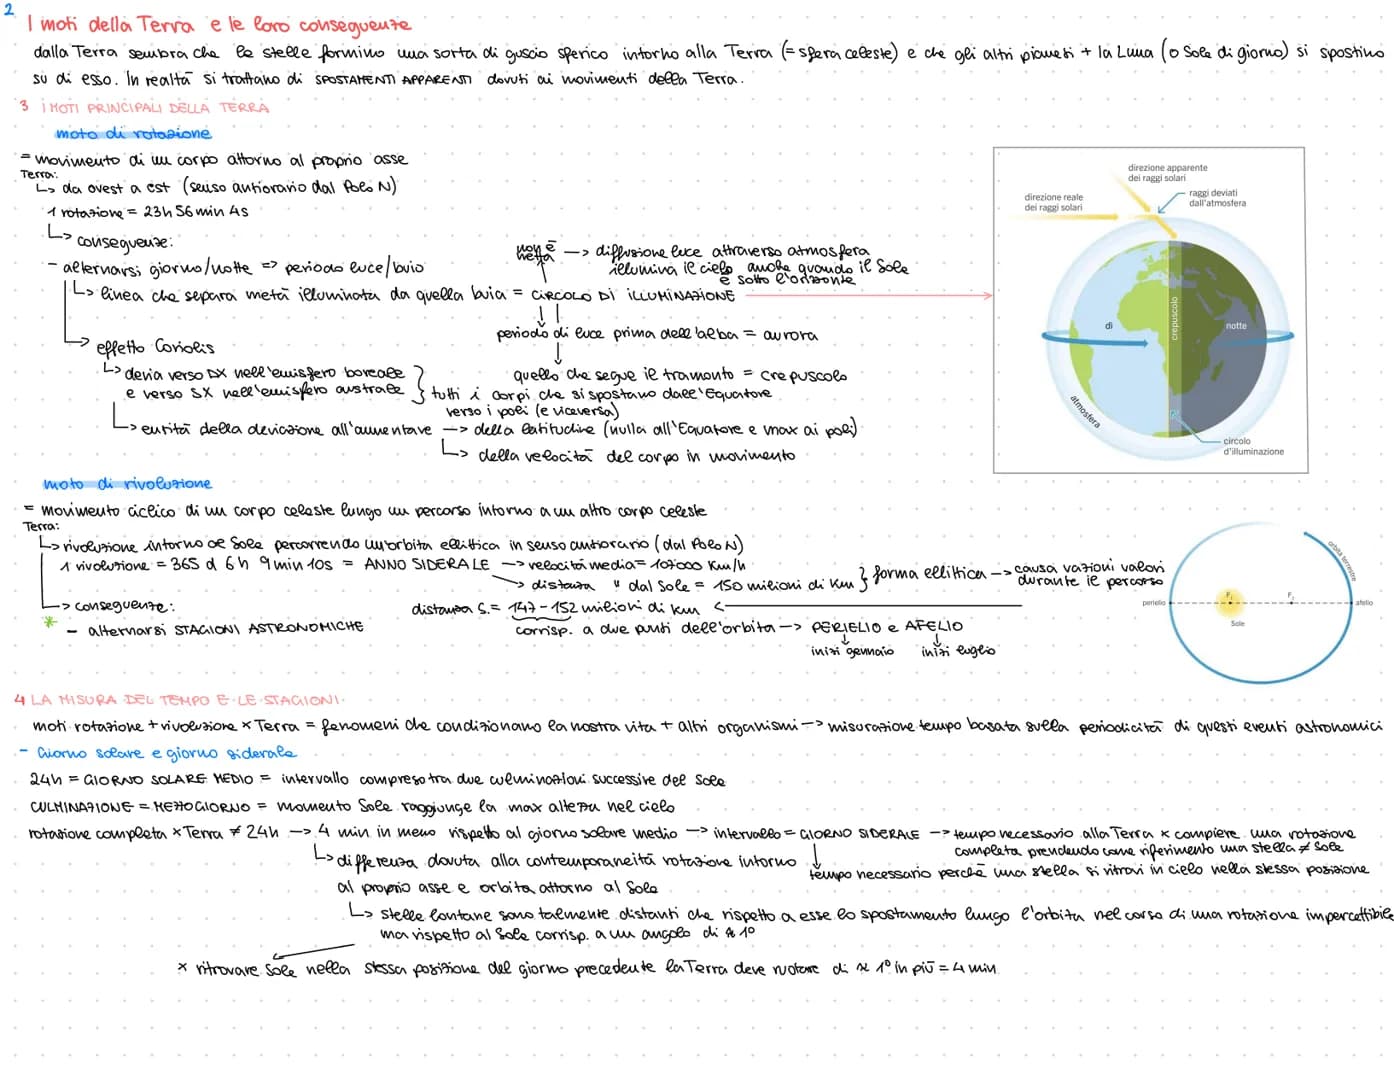 2
I moti della Terra e le loro conseguenze
dalla Terra sembra che le stelle formino una sorta di guscio sferico intorno alla Terra (= sfera celeste) e che gli altri pianeti + la Luna (o Sole di giorno) si spostino
su di esso. In realtà si trattano di SPOSTAMENTI APPARENTI dovuti ai movimenti della Terra.
3 I MOTI PRINCIPALI DELLA TERRA
moto di rotazione
= movimento di un corpo attorno al proprio asse
Terra:
↳ da ovest a est (senso antiorario dal Polo N)
1 rotazione = 23h 56 min 4s
↳ conseguenze:
- alternarsi giorno/notte => periodo luce/buio
non è netta —> diffusione luce attraverso atmosfera
illumina il cielo anche quando il Sole
è sotto l'orizzonte
↳ linea che separa metà illuminata da quella buia = CIRCOLO DI ILLUMINAZIONE
periodo di luce prima dell'alba = aurora
quello che segue il tramonto = crepuscolo
↳ effetto Coriolis
↳ devia verso DX nell'emisfero boreale
e verso SX nell'emisfero australe } tutti i corpi che si spostano dall'Equatore
verso i poli (e viceversa)
↳ entità della deviazione all'aumentare —> della latitudine (nulla all'Equatore e max ai poli)
↳ della velocità del corpo in movimento
direzione apparente
dei raggi solari
direzione reale
dei raggi solari
raggi deviati
dall'atmosfera
dì
crepuscolo
notte
atmosfera
circolo
d'illuminazione
moto di rivoluzione
= movimento ciclico di un corpo celeste lungo un percorso intorno a un altro corpo celeste
Terra:
↳ rivoluzione intorno al Sole percorrendo un'orbita ellittica in senso antiorario (dal Polo N)
1 rivoluzione = 365 d 6h 9min 10s = ANNO SIDERALE —> velocità media = 107000 Km/h
—> distanza " dal Sole = 150 milioni di Km } forma ellittica —> causa vazioni valori
durante il percorso
↳ conseguenze:
distanza S. = 147-152 milioni di km <—
* - alternarsi STAGIONI ASTRONOMICHE
corrisp. a due punti dell'orbita —> PERIELIO e AFELIO
inizi gennaio inizi luglio
orbita terrestre
perielio
F₁
F₂
afelio
Sole
4 LA MISURA DEL TEMPO E LE STAGIONI
moti rotazione + rivoluzione x Terra = fenomeni che condizionano la nostra vita + altri organismi —> misurazione tempo basata sulla periodicità di questi eventi astronomici
- Giorno solare e giorno siderale
24h = GIORNO SOLARE MEDIO = intervallo compreso tra due culminazioni successive del Sole
CULMINAZIONE = MEZZOGIORNO = momento Sole raggiunge la max altezza nel cielo
rotazione completa x Terra ≠ 24h —> 4 min in meno rispetto al giorno solare medio —> intervallo = GIORNO SIDERALE —> tempo necessario alla Terra x compiere una rotazione
completa prendendo come riferimento una stella ≠ Sole
↳ differenza dovuta alla contemporaneità rotazione intorno
tempo necessario perchè una stella si ritrovi in cielo nella stessa posizione
al proprio asse e orbita attorno al Sole
↳ stelle lontane sono talmente distanti che rispetto a esse lo spostamento lungo l'orbita nel corso di una rotazione impercettibile
ma rispetto al Sole corrisp. a un angolo di ≈ 1°
x ritrovare Sole nella stessa posizione del giorno precedente la Terra deve ruotare di ≈ 1° in più = 4 min